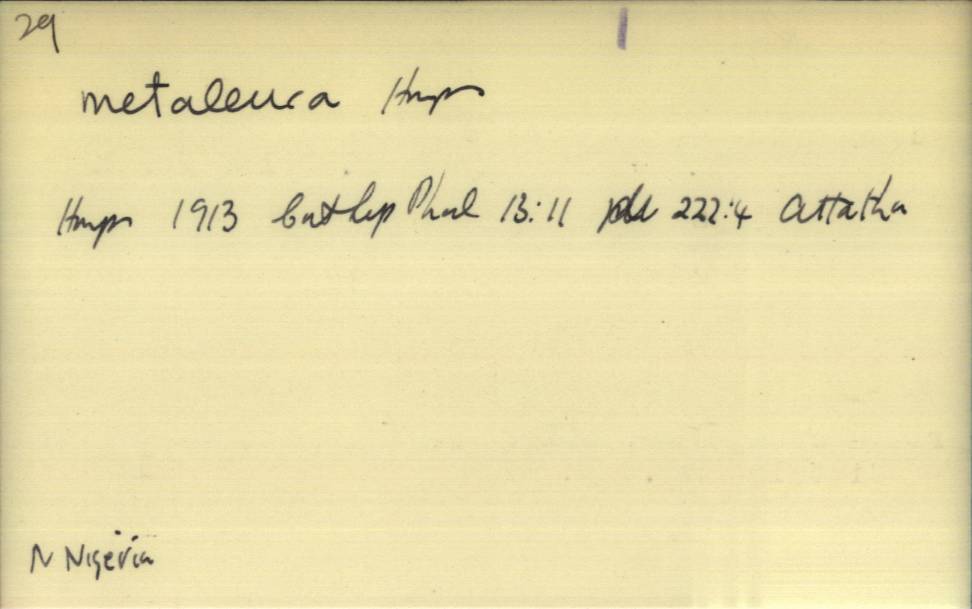 29
metaleuca Hmps
Hmps 1913 Cat Lep Phal 13:11 pl 222:4 Attatha
N Nigeria